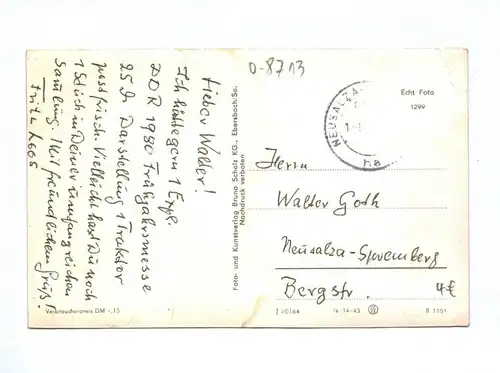 0-8713
Lieber Walter!
Ich hätte gern 1 Expl.
DDR 1980 Frühjahrsmesse
25 Pf Darstellung 1 Traktor
postfrisch. Vielleicht hast Du noch
1 Stück in Deiner umfangreichen
Samlung. Mit freundlichem Gruß!
Fritz Loos
Verbraucherpreis DM -,15
Foto- und Kunstverlag Bruno Scholz KG., Ebersbach/Sa.
Nachdruck verboten
NEUSALZA
na
Echt Foto
1299
Herrn
Walter Goth
Neusalza-Spremberg
Bergstr.
4€
J 70/64
IV-14-45
B 1151